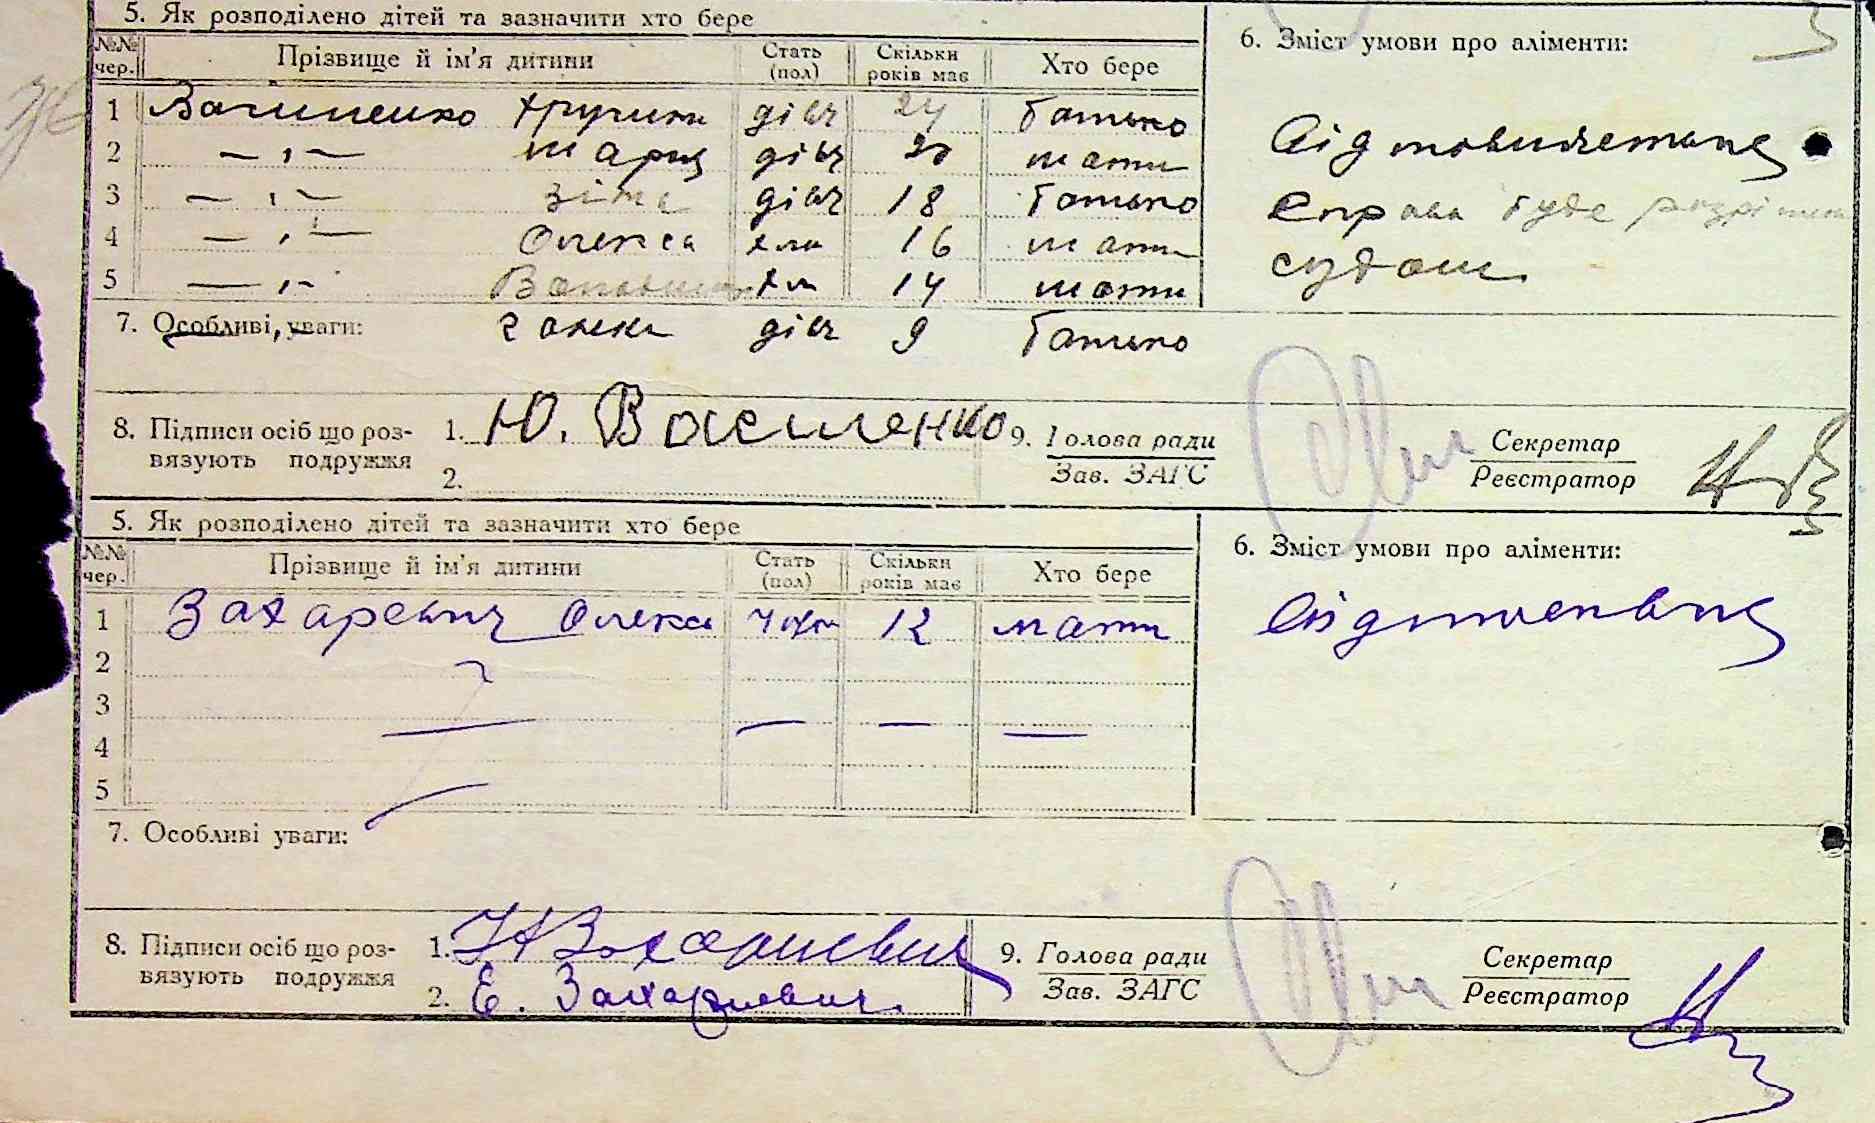 5. Як розподілено дітей та зазначити хто бере
6. Зміст умови про аліменти:
№№ чер. Прізвище й ім'я дитини Стать (пол) Скільки років має Хто бере
1 Василенко дівч 24 батько
2 — „ — Марія дівч 20 мати
3 — „ — Зіна дівч 18 батько
4 — „ — Олекса хло 16 мати
5 — „ — хл 14 мати
Справа буде
судом.
7. Особливі уваги: Ганна дівч 9 батько
8. Підписи осіб що роз-
вязують подружжя
1. Ю. Василенко
2.
9. Голова ради
Зав. ЗАГС
Секретар
Реєстратор
5. Як розподілено дітей та зазначити хто бере
6. Зміст умови про аліменти:
№№ чер. Прізвище й ім'я дитини Стать (пол) Скільки років має Хто бере
1 Захаревич Олекса 12 мати
2
3 — — — —
4
5
7. Особливі уваги:
8. Підписи осіб що роз-
вязують подружжя
1. Захариевич
2. Е. Захариевич.
9. Голова ради
Зав. ЗАГС
Секретар
Реєстратор